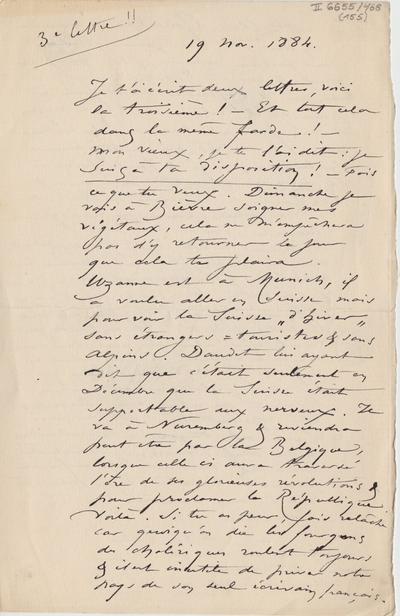 II 6655/468
(155)
3e lettre !!
19 Nov. 1884.
Je t'ai écrit deux lettres, voici
la troisième ! — Et tout cela
dans la même farde ! —
mon vieux, je te l'ai dit : je
suis à ta disposition ! — Vois
ce que tu veux. Dimanche je
vais à Bièvre soigner mes
végétaux, cela ne m'empêchera
pas d'y retourner le jour
que cela te plaira.
Uzanne est à Munich, il
a voulu aller en Suisse mais
pour voir la Suisse „d'hiver"
sans étrangers = touristes & sans
Alpins. Daudet lui ayant
dit que c'était seulement en
Décembre que la Suisse était
supportable aux nerveux. Il
va à Nuremberg & reviendra
peut être par la Belgique,
lorsque celle ci aura traversé
l'ère de ses glorieuses révolutions &
pour proclamer la République.
Voilà. Si tu as peur, fais relâche
car quoiqu'on die les fourgons
des cholériques roulent toujours
& il est inutile de priver notre
pays de son seul écrivain français.